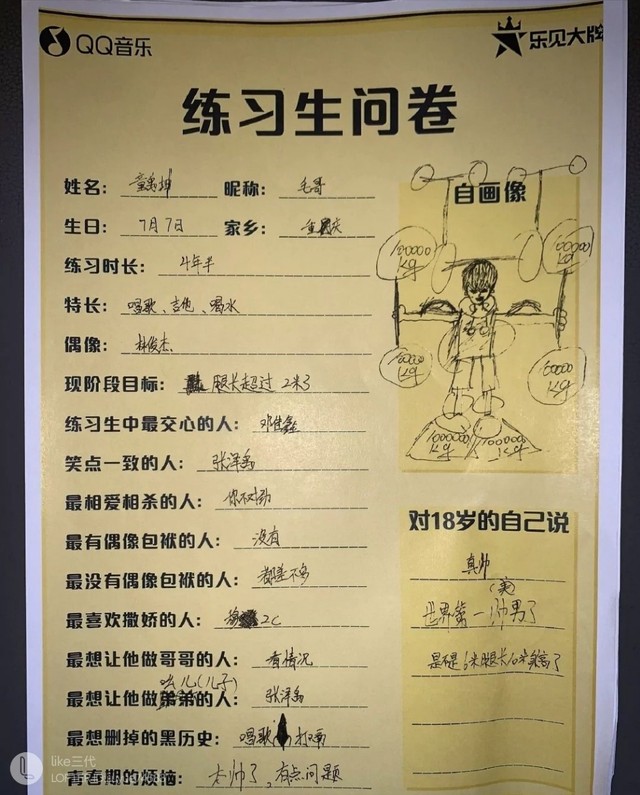 QQ音乐
乐见大牌
练习生问卷
姓名: 童禹坤 昵称: 毛哥
生日: 7月7日 家乡: 重庆
练习时长: 4年半
特长: 唱歌、吉他、喝水
偶像: 林俊杰
现阶段目标: 腿长超过2米3
练习生中最交心的人: 邓佳鑫
笑点一致的人: 张泽禹
最相爱相杀的人: 你不懂
最有偶像包袱的人: 没有
最没有偶像包袱的人: 都差不多
最喜欢撒娇的人: ZC
最想让他做哥哥的人: 看情况
幺儿(儿子)
最想让他做弟弟的人: 张泽禹
最想删掉的黑历史: 唱歌
青春期的烦恼: 太帅了,有点问题
自画像
100000
kg
100000
kg
10000
kg
60000
kg
1000000
kg
1000000
kg
对18岁的自己说
真帅
(美)
世界第一帅男了
是不是6米腿长10米身高了
like三代